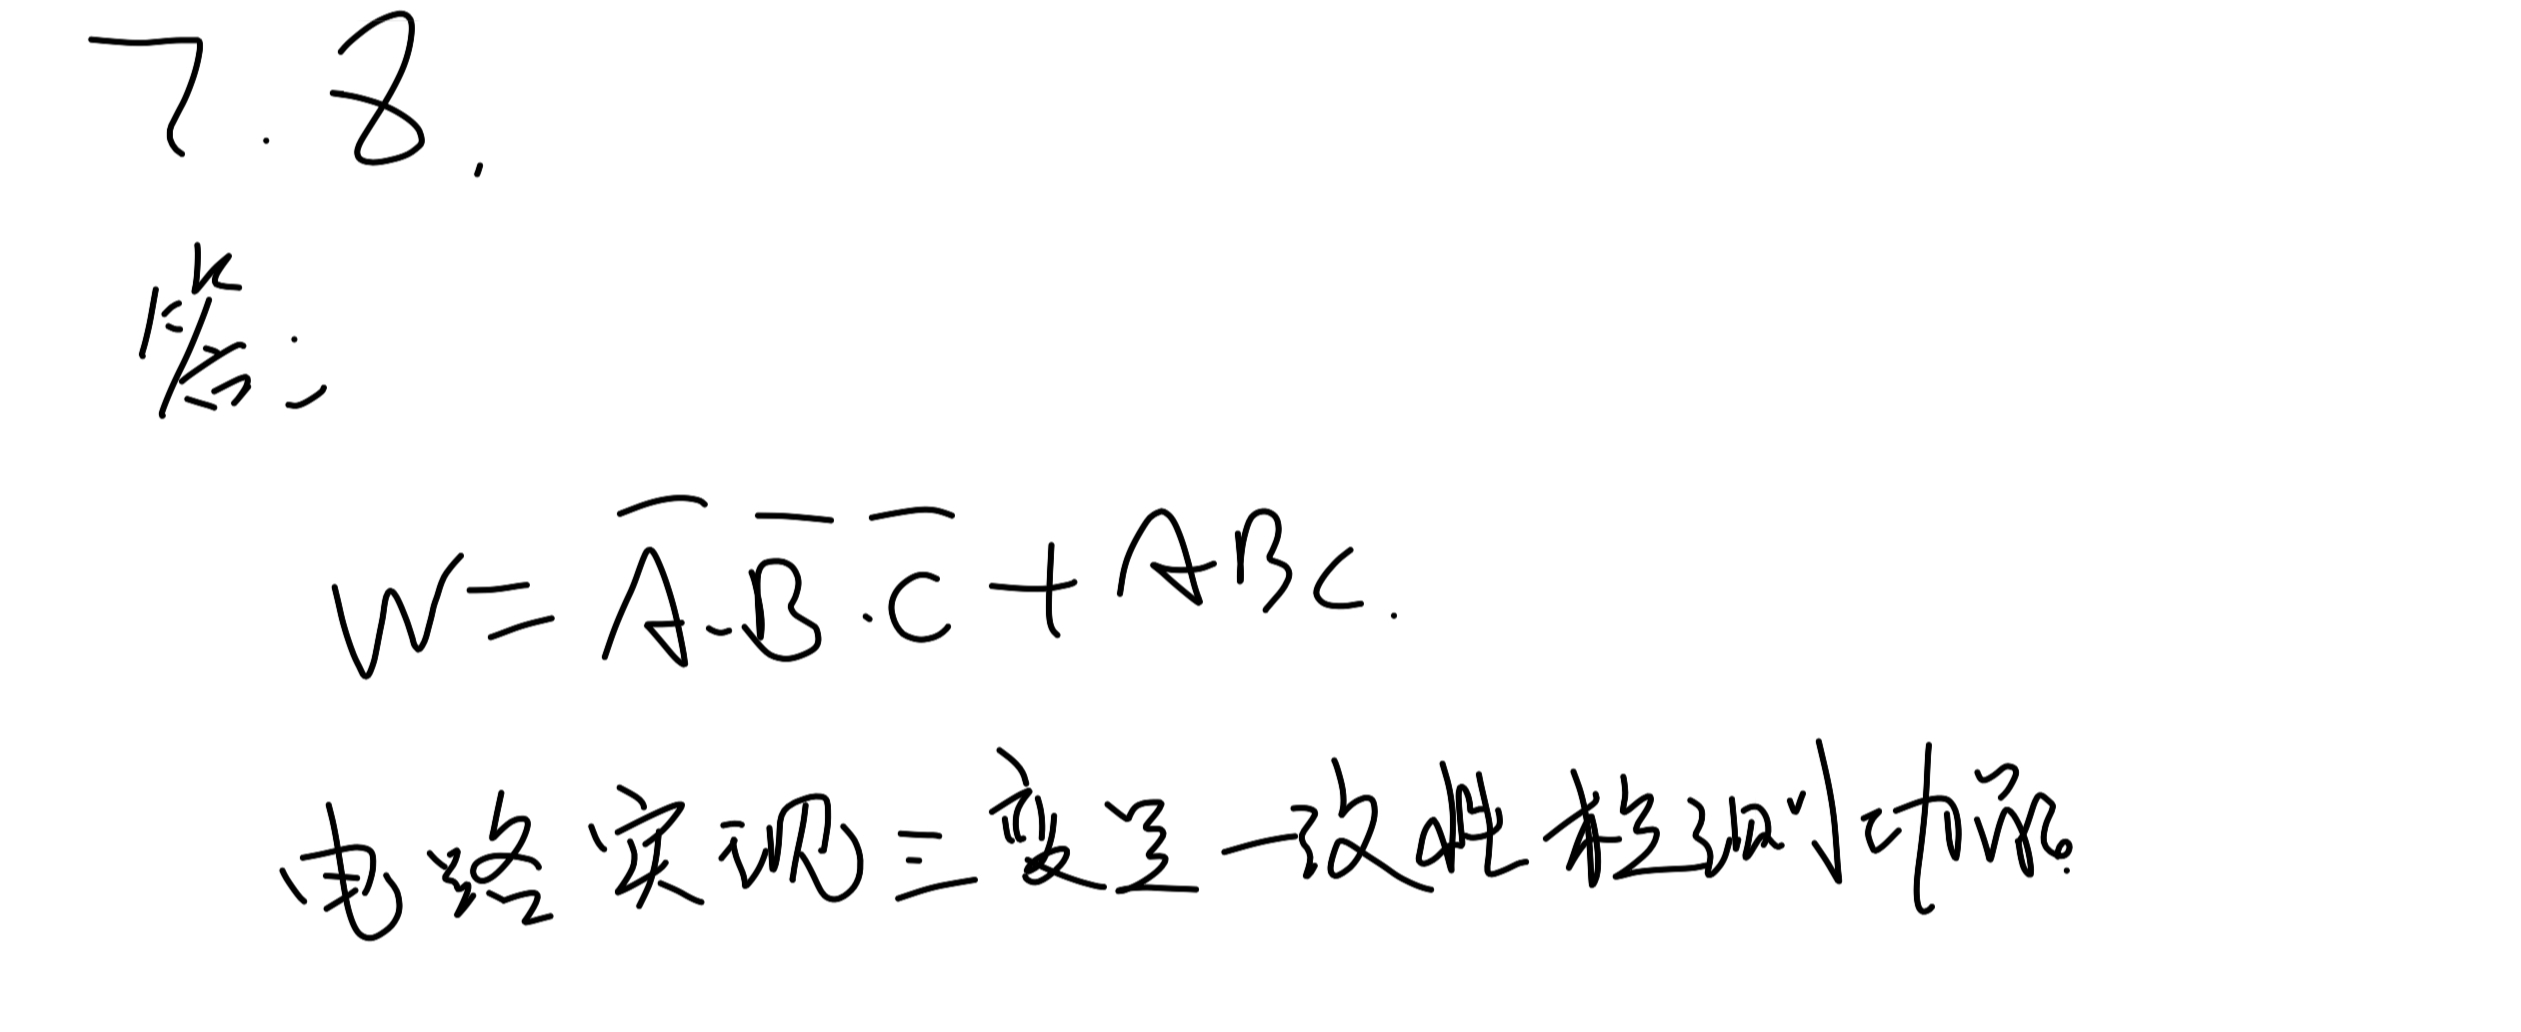 7.8.
答:
W = \overline{A}·\overline{B}·\overline{C} + ABC.
电路实现三变量一致性检测功能.